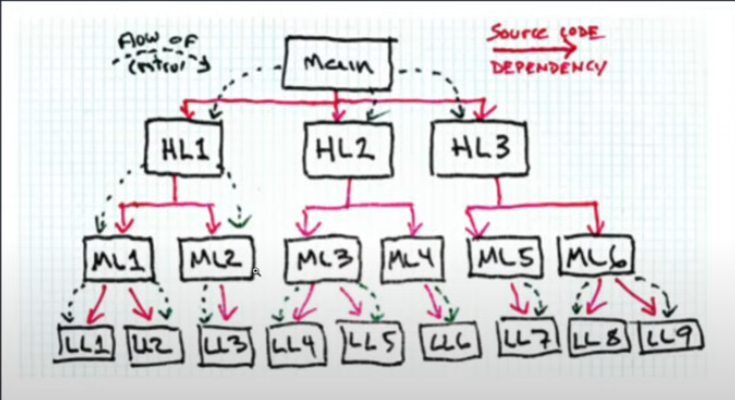 Flow of
Control
Main
Source CODE
DEPENDENCY
HL1
HL2
HL3
ML1
ML2
ML3
ML4
ML5
ML6
LL1
LL2
LL3
LL4
LL5
LL6
LL7
LL8
LL9